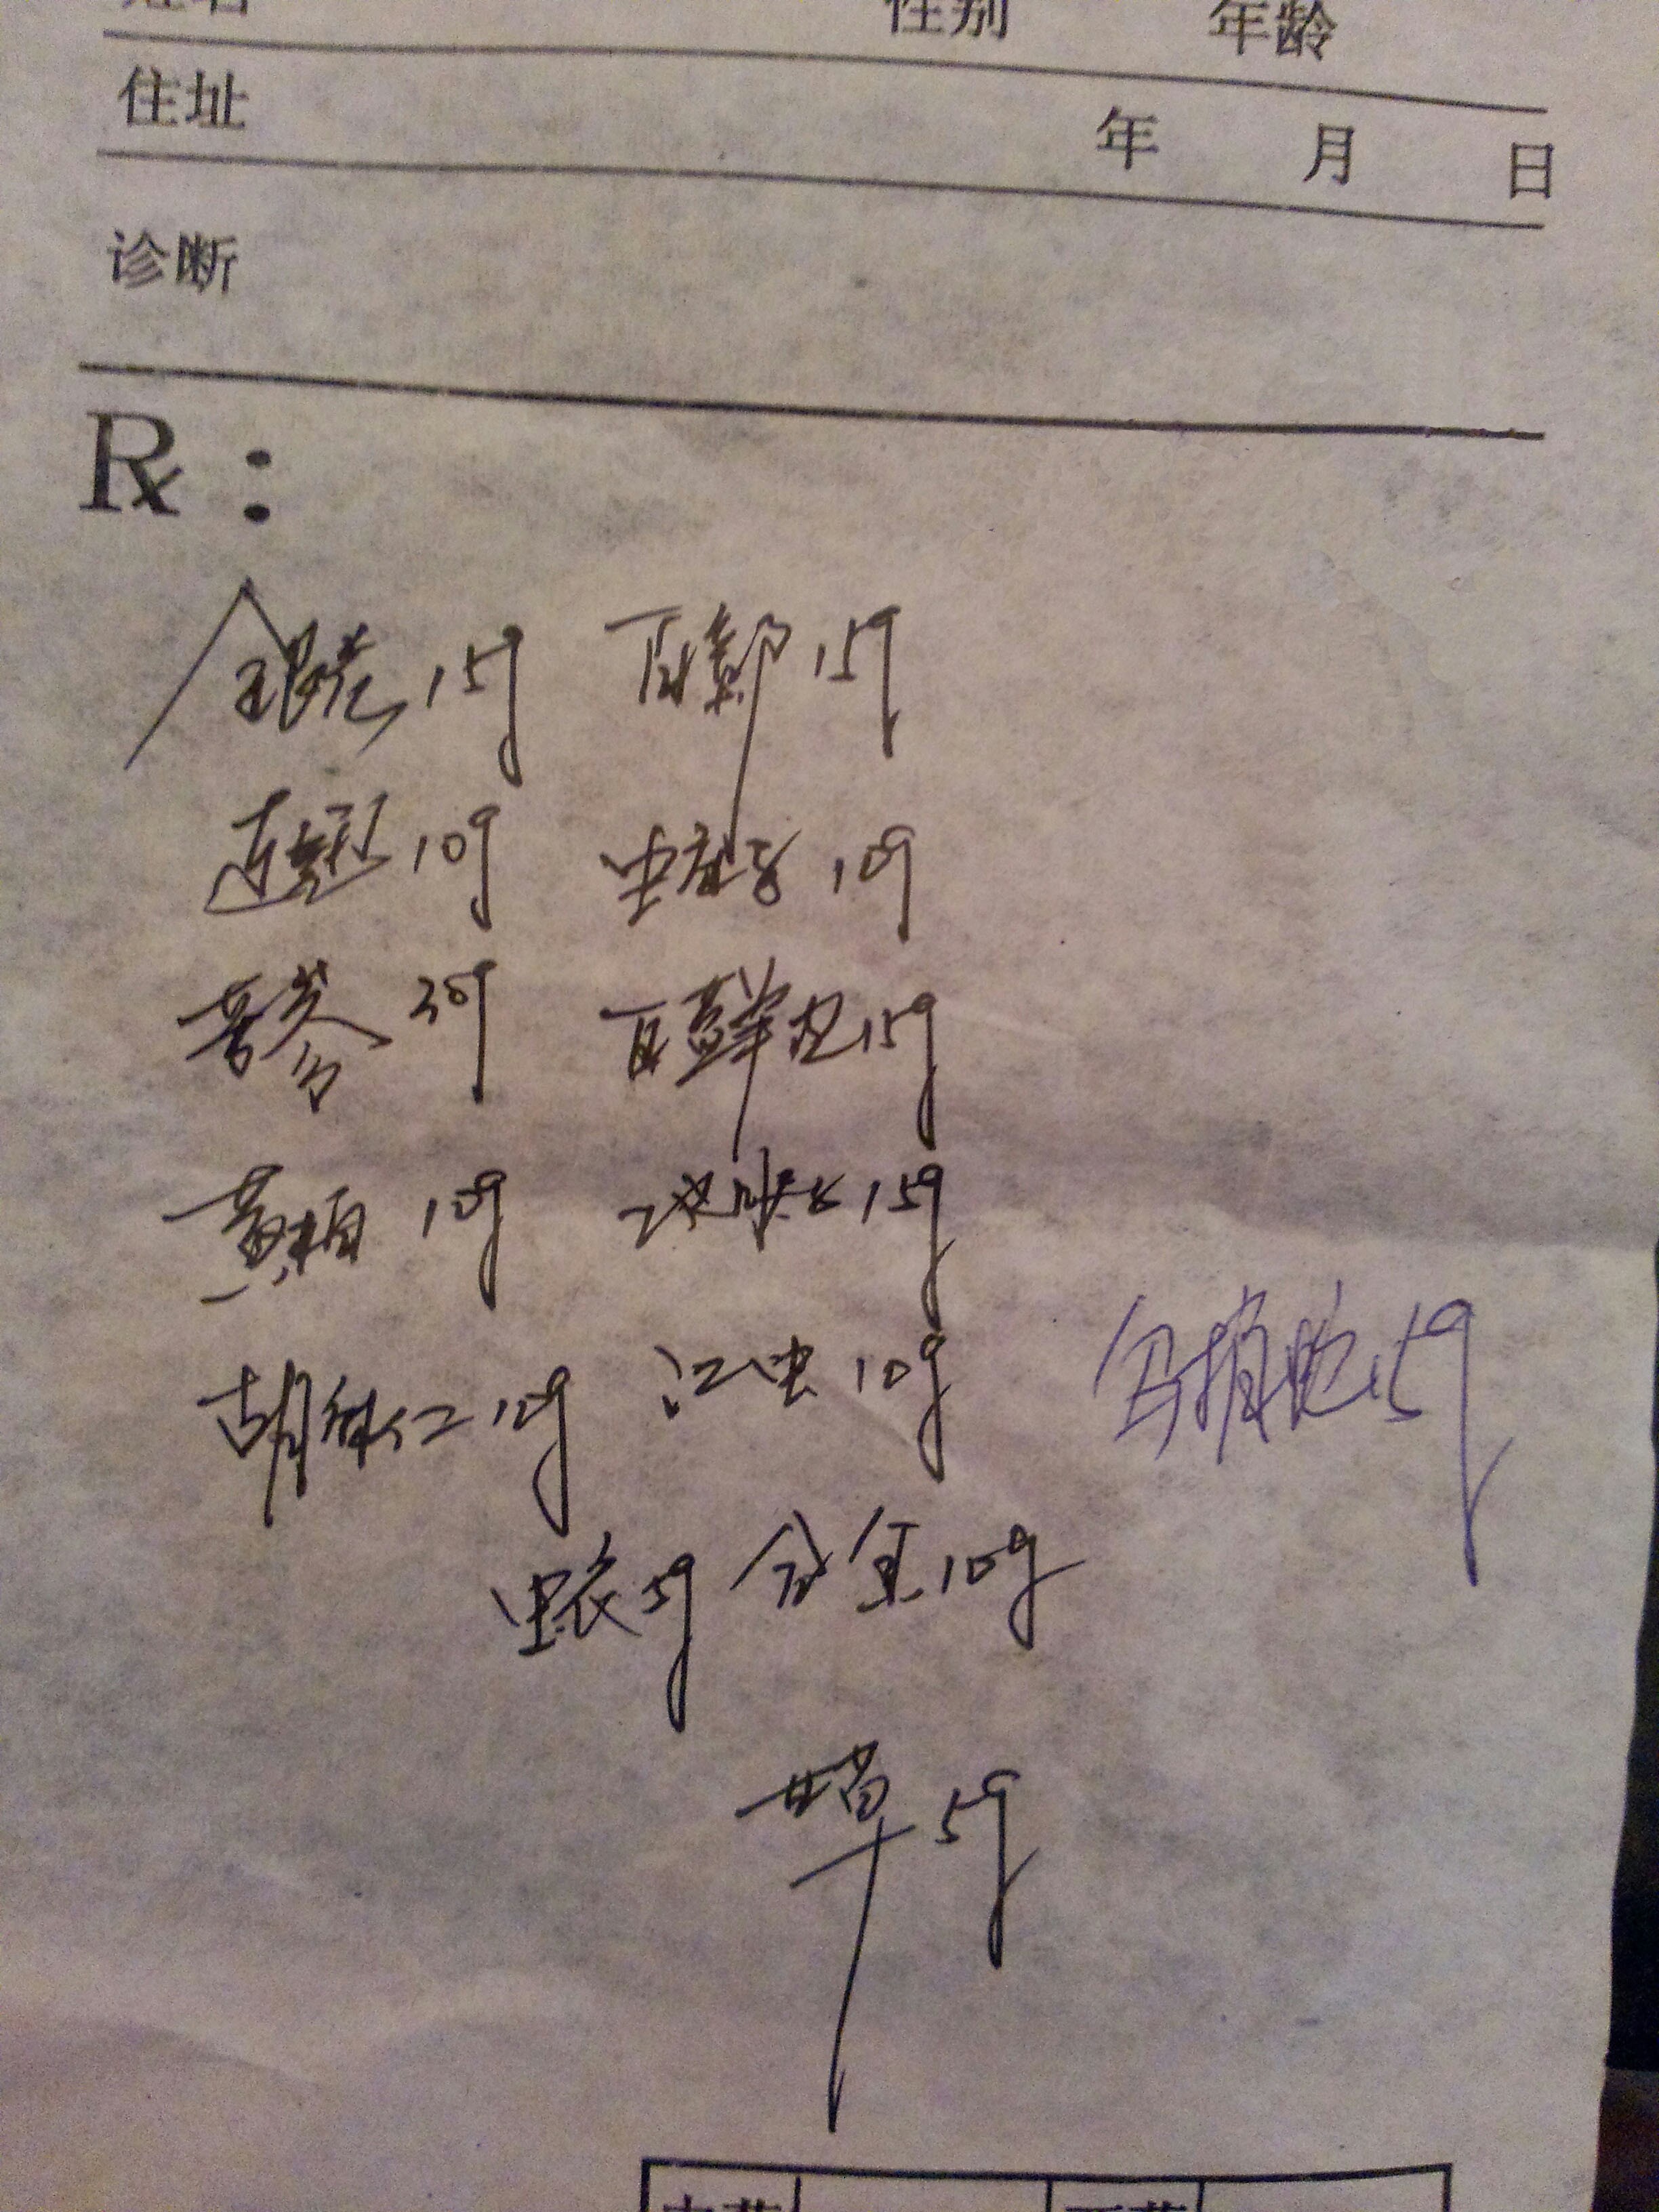 姓名 性别 年龄
住址 年 月 日
诊断
Rx：
银花 15g 百部 15g
连翘 10g 虫床子 10g
苦参 30g 白鲜皮 15g
黄柏 10g 地肤子 15g
胡麻仁 10g 江虫 10g
虫衣 5g 全 10g
甘草 5g